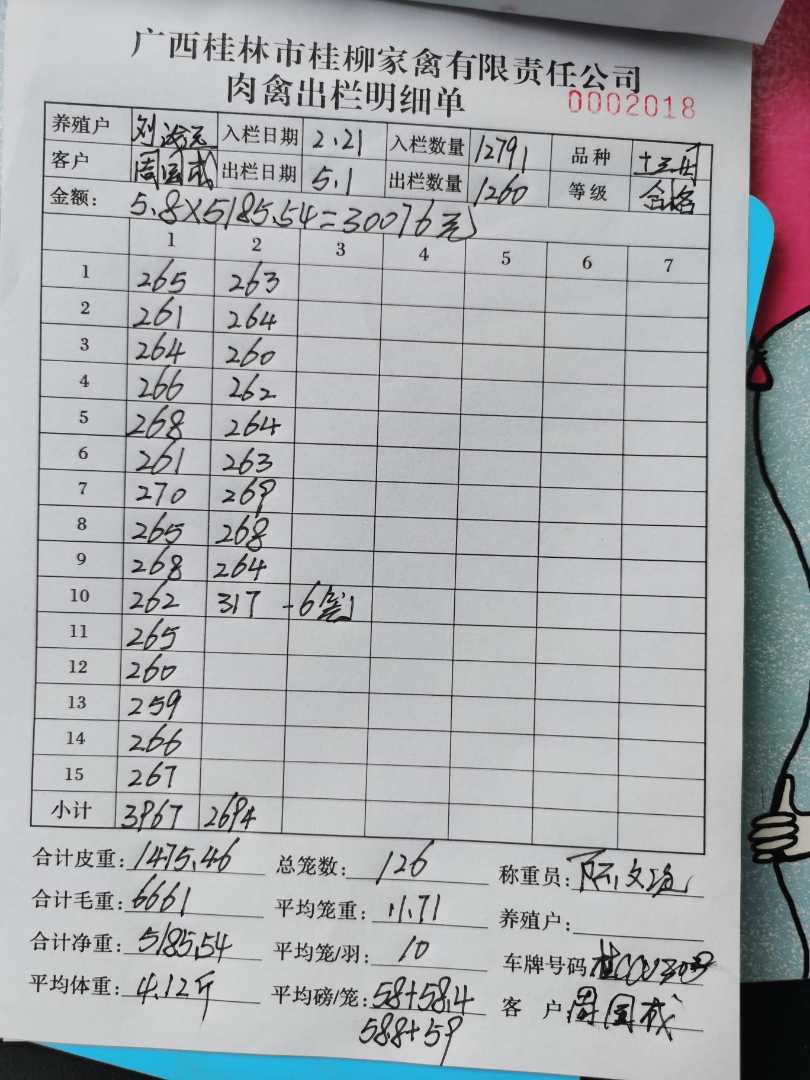 广西桂林市桂柳家禽有限责任公司
肉禽出栏明细单 0002018
养殖户 刘 入栏日期 2.21 入栏数量 12791 品种
客户 周国成 出栏日期 5.1 出栏数量 1260 等级 合格
金额: 5.8×5185.54=30076元
1 2 3 4 5 6 7
1 265 263
2 261 264
3 264 260
4 266 262
5 268 264
6 261 263
7 270 269
8 265 268
9 268 264
10 262 317 -6笼
11 265
12 260
13 259
14 266
15 267
小计 3967 2694
合计皮重: 1475.46 总笼数: 126 称重员:
合计毛重: 6661 平均笼重: 11.71 养殖户:
合计净重: 5185.54 平均笼/羽: 10 车牌号码
平均体重: 4.12斤 平均磅/笼: 58+58.4 客 户: 周国成
58.8+59